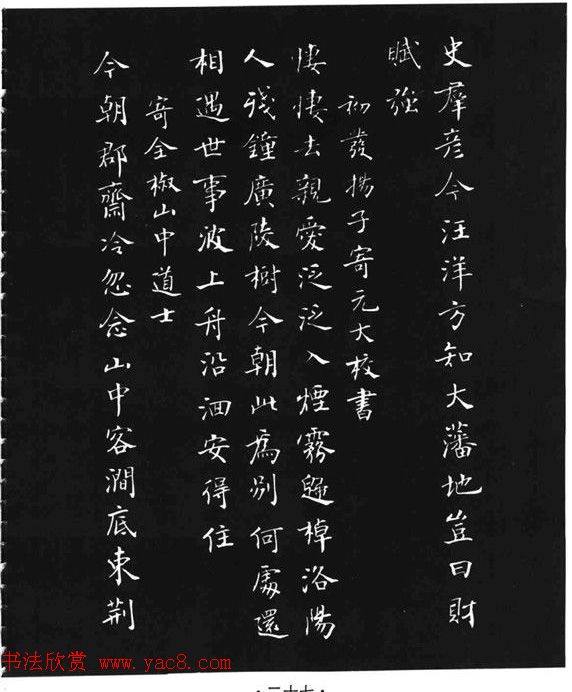 史羣彦今汪洋方知大藩地豈曰財
賦強
初發揚子寄元大校書
悽悽去親愛泛泛入煙霧歸棹洛陽
人殘鐘廣陵樹今朝此爲別何處還
相遇世事波上舟沿洄安得住
寄全椒山中道士
今朝郡齋冷忽念山中客澗底束荆
书法欣赏 www.yac8.com
·二十七·